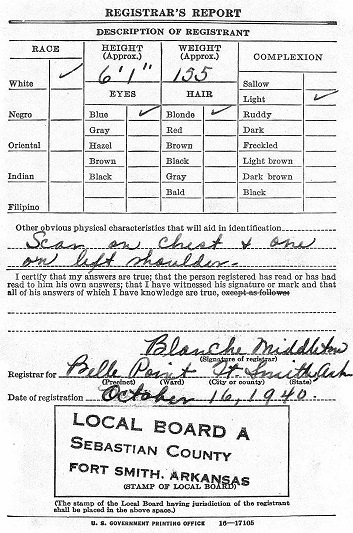 REGISTRAR'S REPORT
DESCRIPTION OF REGISTRANT
RACE
HEIGHT (Approx.)
WEIGHT (Approx.)
COMPLEXION
6'1"
155
White ✓
Sallow
EYES
HAIR
Light ✓
Negro
Blue ✓
Blonde ✓
Ruddy
Gray
Red
Dark
Oriental
Hazel
Brown
Freckled
Brown
Black
Light brown
Indian
Black
Gray
Dark brown
Bald
Black
Filipino
Other obvious physical characteristics that will aid in identification
Scar on chest & one
on left shoulder.
I certify that my answers are true; that the person registered has read or has had
read to him his own answers; that I have witnessed his signature or mark and that
all of his answers of which I have knowledge are true, except as follows:
Blanche Middleton
(Signature of registrar)
Registrar for Belle Point Ft. Smith, Ark
(Precinct) (Ward) (City or county) (State)
Date of registration October 16, 1940.
LOCAL BOARD A
SEBASTIAN COUNTY
FORT SMITH, ARKANSAS
(STAMP OF LOCAL BOARD)
(The stamp of the Local Board having jurisdiction of the registrant
shall be placed in the above space.)
U. S. GOVERNMENT PRINTING OFFICE 16—17105